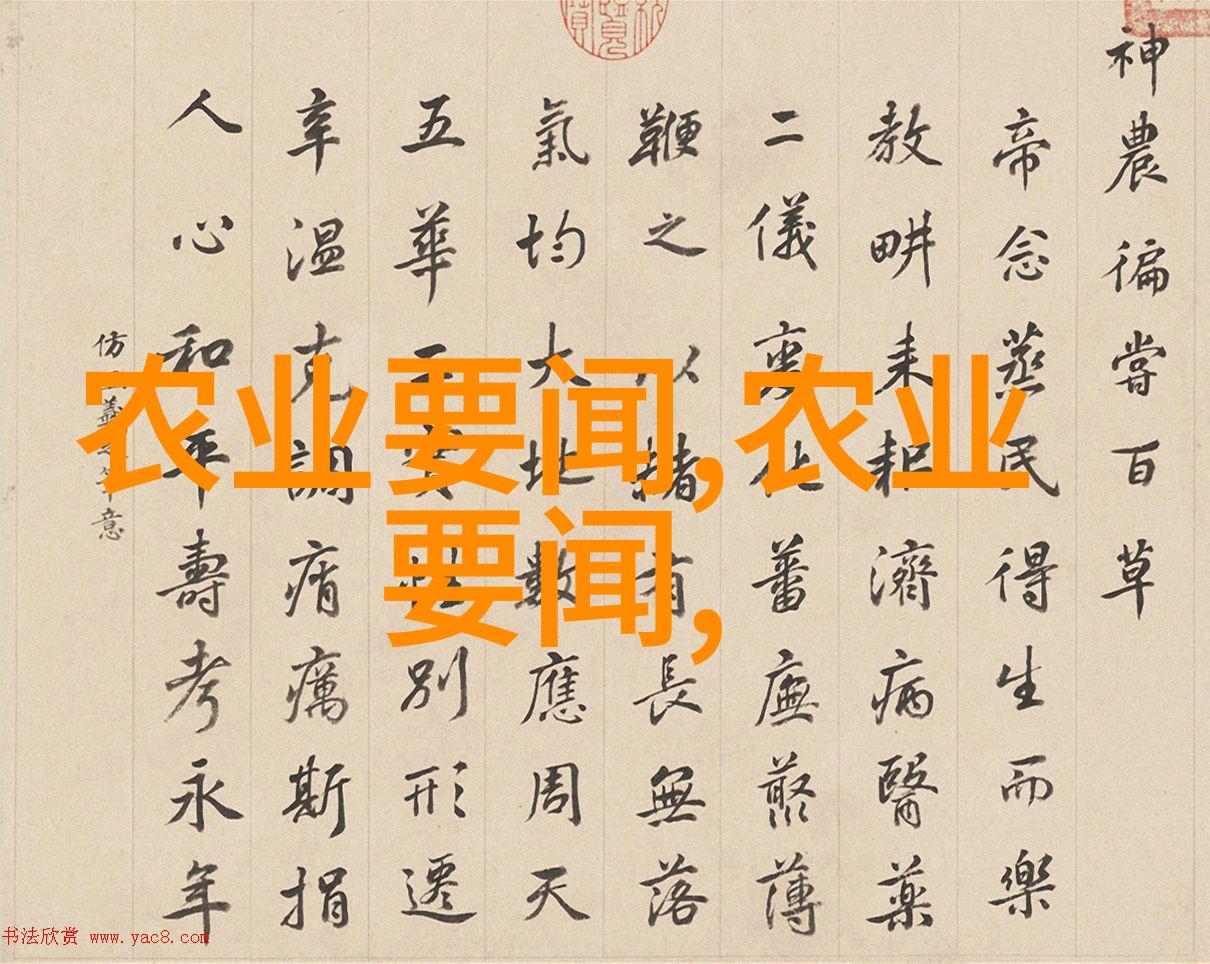 神農徧嘗百草
帝念蒸民得生而樂
教畊耒耜濟病醫藥
二儀化蕃廡藂薄
鞭之以赭有長無落
氣均大地數應周天
五華別形遷
辛温克調瘠癘斯捐
人心和平壽考永年
仿羲意
农业要闻,农业
要闻,
书法欣赏 www.yac8.com